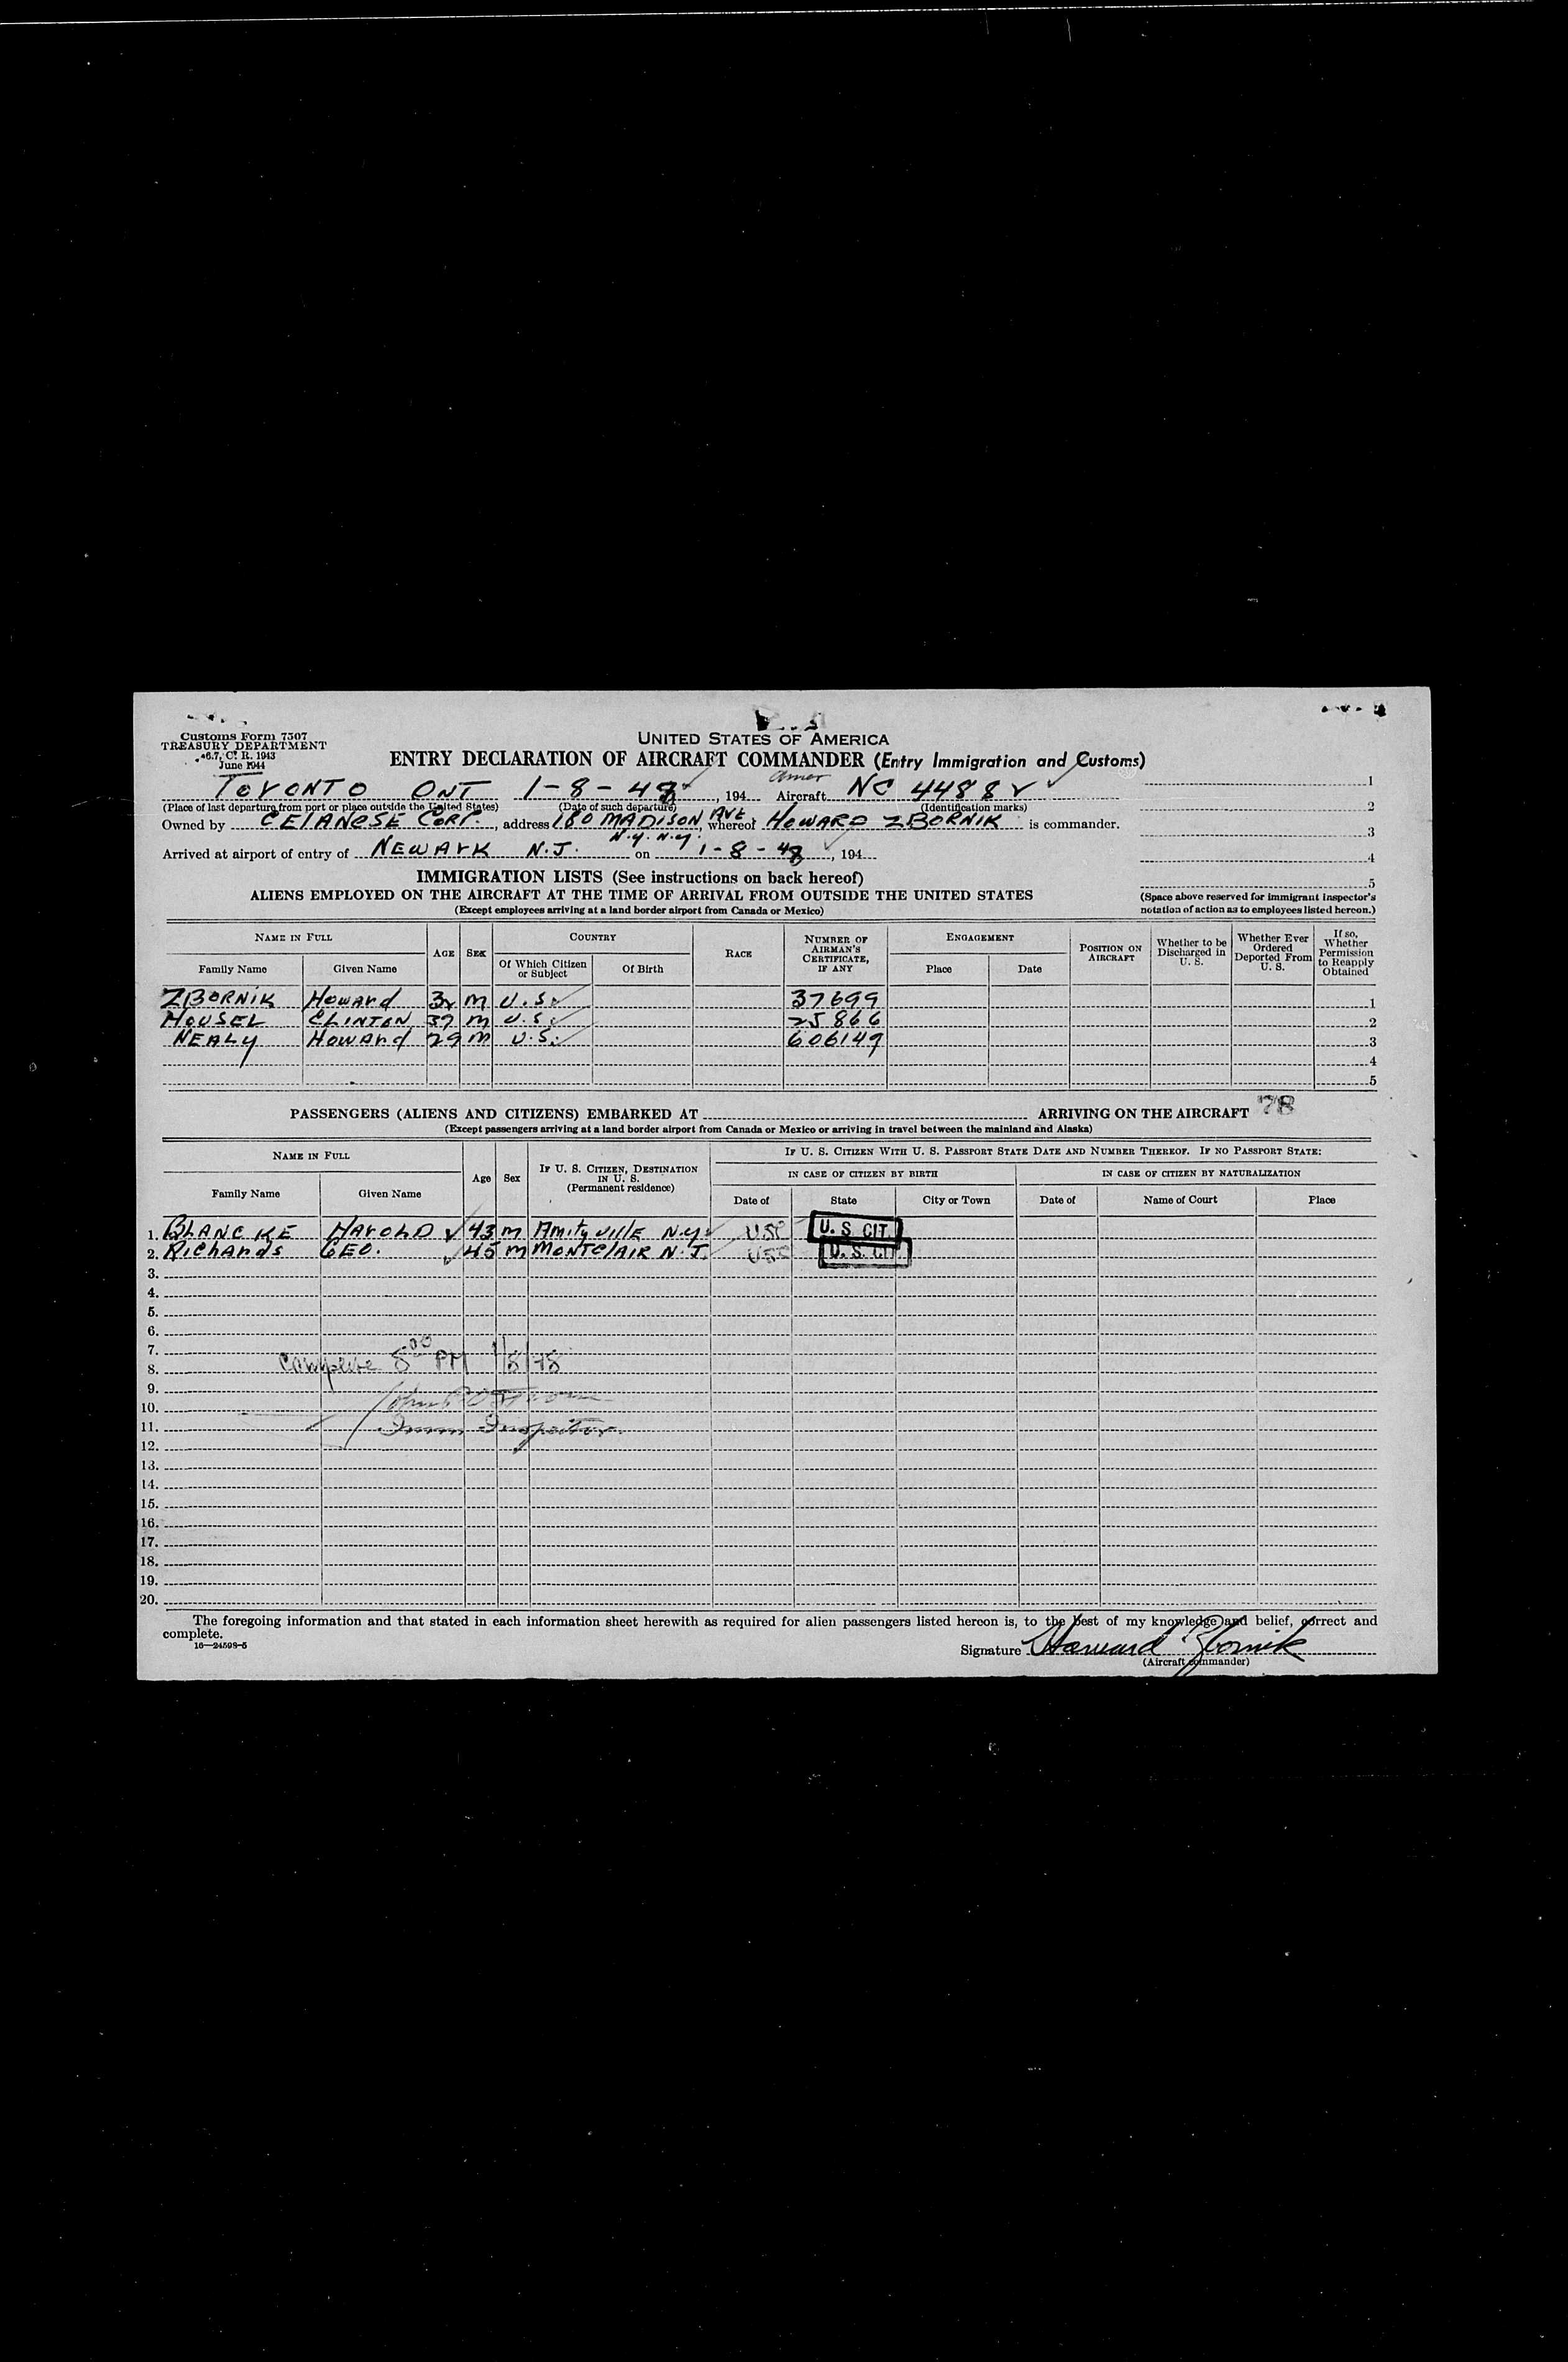 Customs Form 7507
TREASURY DEPARTMENT
6.7, C. R. 1943
June 1944
UNITED STATES OF AMERICA
ENTRY DECLARATION OF AIRCRAFT COMMANDER (Entry Immigration and Customs)
TORONTO ONT 1-8-48, 194 Amer Aircraft NC 4488
(Place of last departure from port or place outside the United States) (Date of such departure) (Identification marks)
Owned by CELANESE CORP., address 180 MADISON AVE N.Y. N.Y., whereof HOWARD ZBORNIK is commander.
Arrived at airport of entry of NEWARK N.J. on 1-8-48, 194
1
2
3
4
5
(Space above reserved for immigrant inspector's
notation of action as to employees listed hereon.)
IMMIGRATION LISTS (See instructions on back hereof)
ALIENS EMPLOYED ON THE AIRCRAFT AT THE TIME OF ARRIVAL FROM OUTSIDE THE UNITED STATES
(Except employees arriving at a land border airport from Canada or Mexico)
NAME IN FULL AGE SEX COUNTRY RACE NUMBER OF AIRMAN'S CERTIFICATE, IF ANY ENGAGEMENT POSITION ON AIRCRAFT Whether to be Discharged in U. S. Whether Ever Ordered Deported From U. S. If so, Whether Permission to Reapply Obtained
Family Name Given Name Of Which Citizen or Subject Of Birth Place Date
ZBORNIK Howard M U.S. 37699 1
HOUSEL CLINTON 37 M U.S. 25866 2
NEALY Howard 29 M U.S. 606149 3
4
5
PASSENGERS (ALIENS AND CITIZENS) EMBARKED AT ARRIVING ON THE AIRCRAFT 78
(Except passengers arriving at a land border airport from Canada or Mexico or arriving in travel between the mainland and Alaska)
NAME IN FULL Age Sex IF U. S. CITIZEN, DESTINATION IN U. S. (Permanent residence) IF U. S. CITIZEN WITH U. S. PASSPORT STATE DATE AND NUMBER THEREOF. IF NO PASSPORT STATE:
IN CASE OF CITIZEN BY BIRTH IN CASE OF CITIZEN BY NATURALIZATION
Family Name Given Name Date of State City or Town Date of Name of Court Place
1. BLANCKE HAROLD 43 M Amityville N.Y. U.S. CIT.
2. Richards GEO. 45 M MONTCLAIR N.J. U.S. CIT.
3.
4.
5.
6.
7.
8. Complete 8 00 PM 1/8/48
9.
10. John
11. Imm Inspector
12.
13.
14.
15.
16.
17.
18.
19.
20.
The foregoing information and that stated in each information sheet herewith as required for alien passengers listed hereon is, to the best of my knowledge and belief, correct and
complete.
16—24598-5
Signature Howard Zbornik
(Aircraft commander)